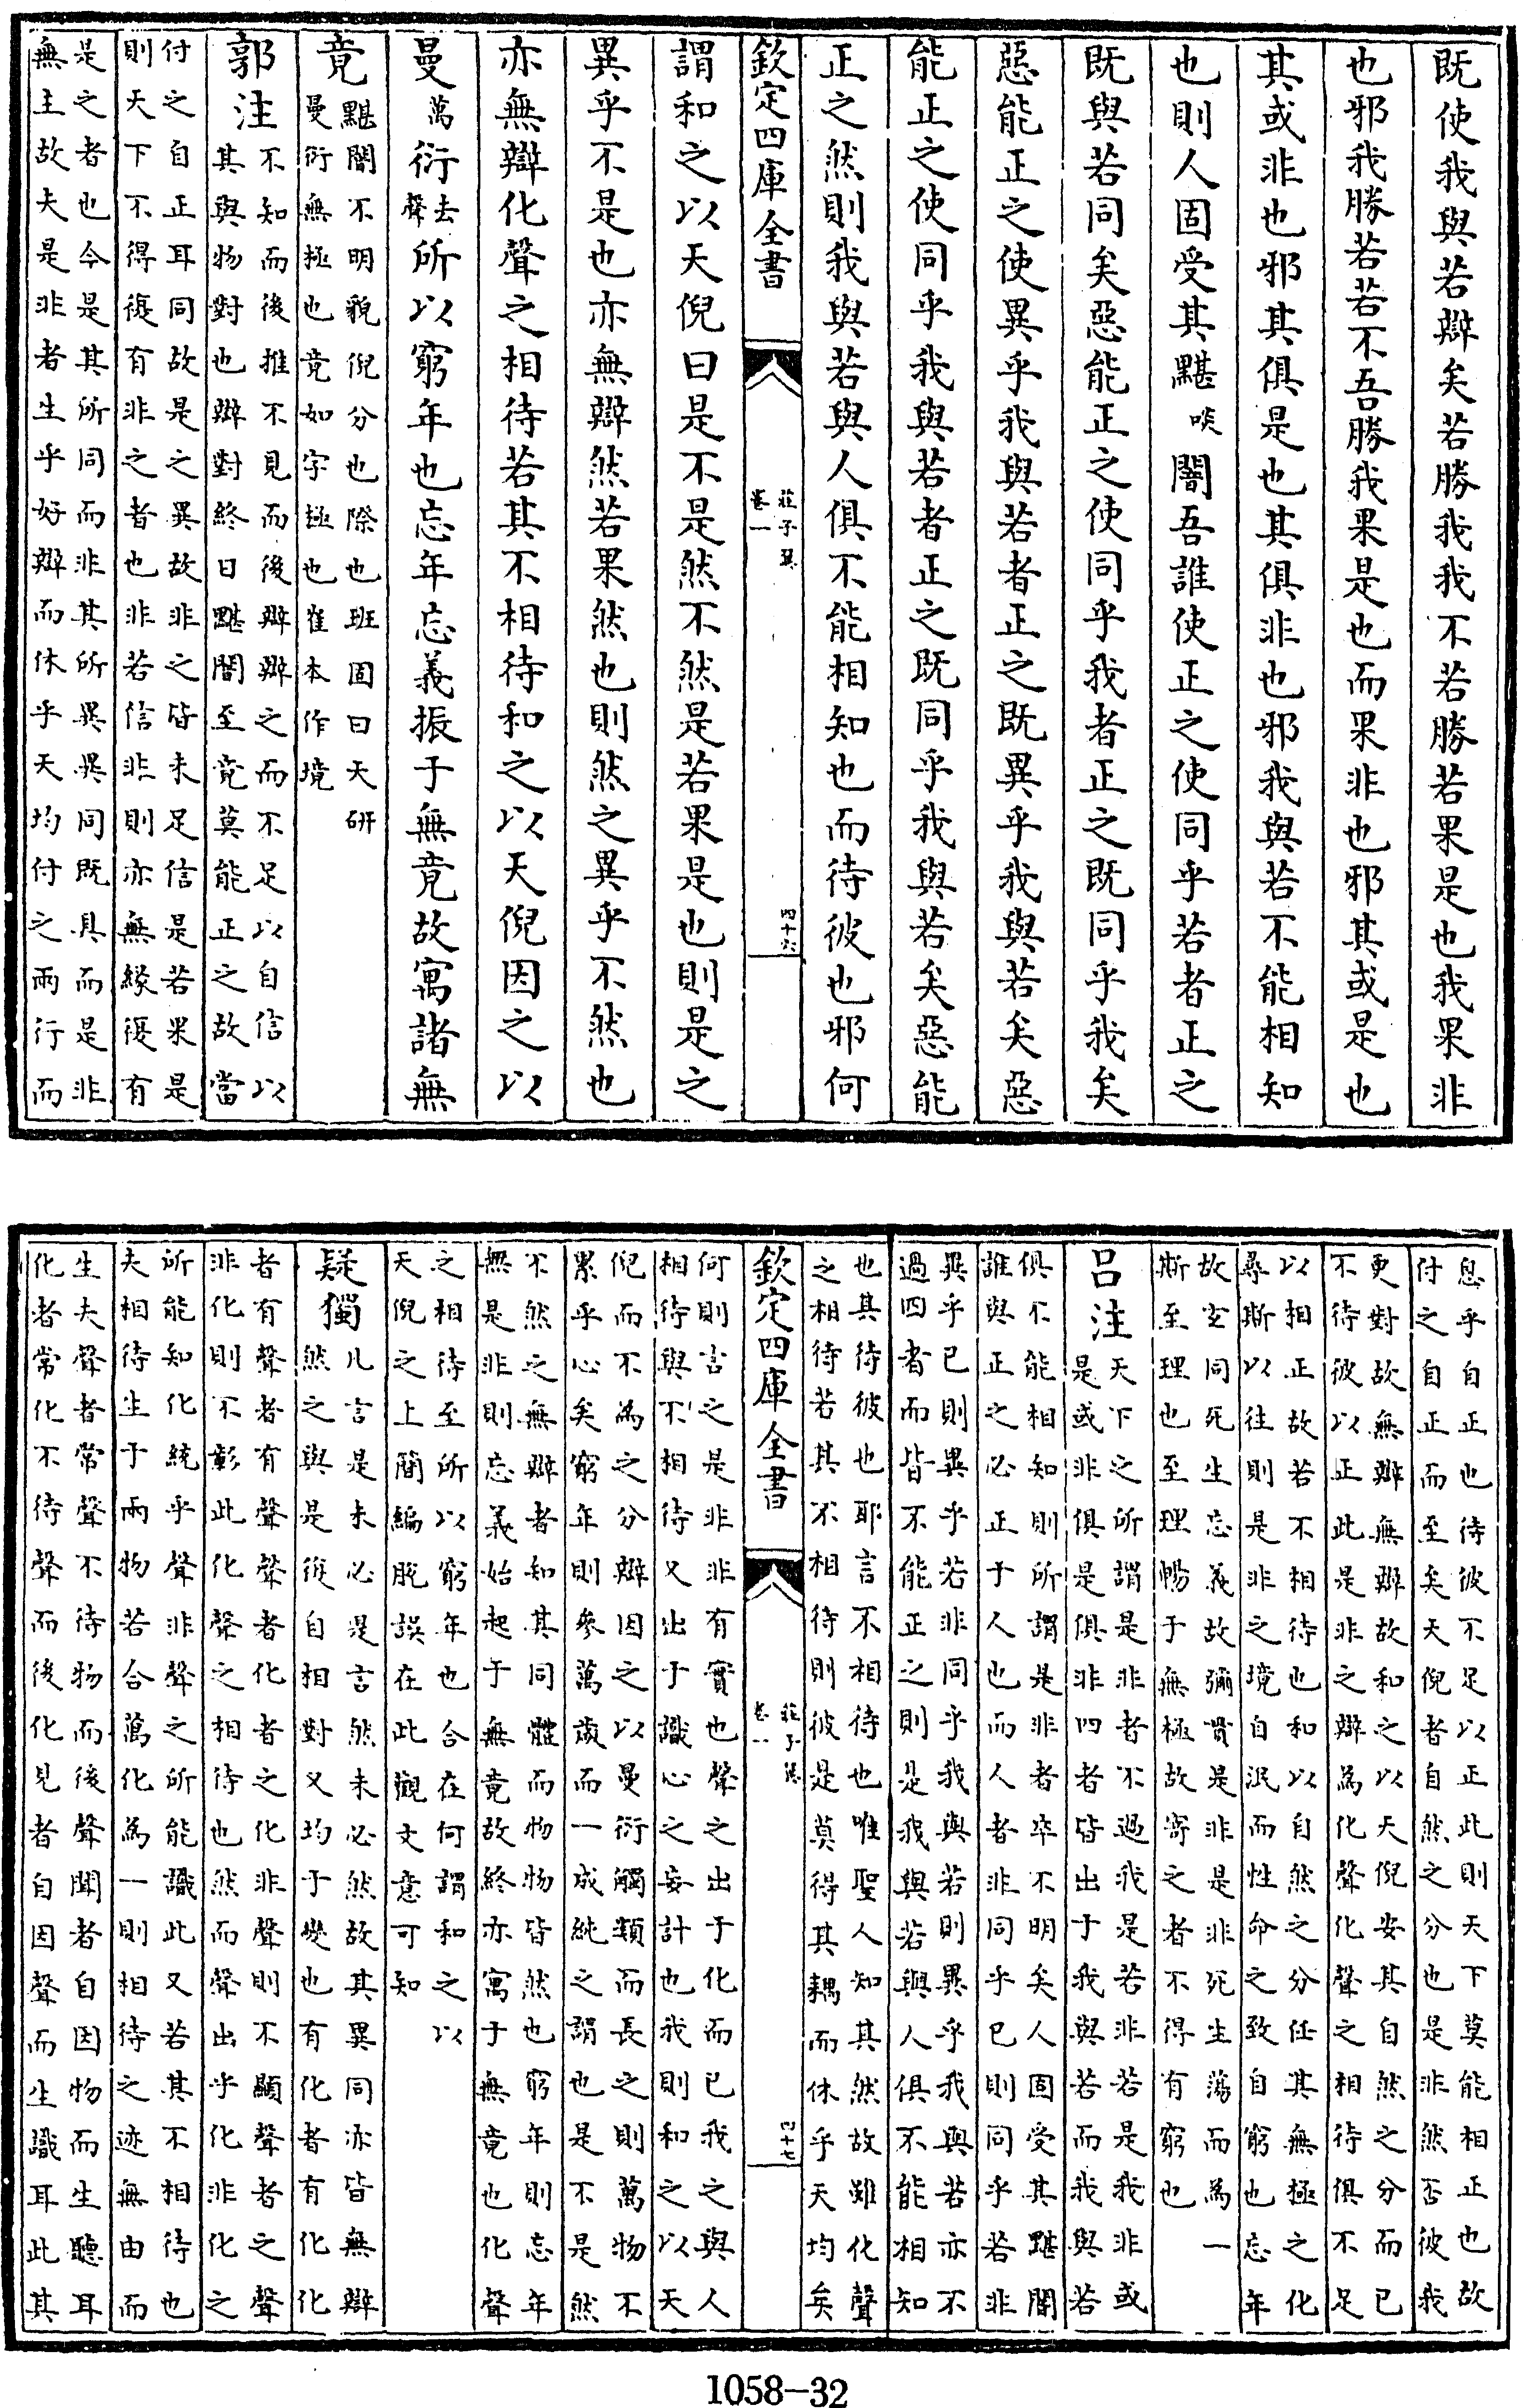 既使我與若辯矣若勝我我不若勝若果是也我果非
也邪我勝若若不吾勝我果是也而果非也邪其或是也
其或非也邪其俱是也其俱非也邪我與若不能相知
也則人固受其黮啖闇吾誰使正之使同乎若者正之
既與若同矣惡能正之使同乎我者正之既同乎我矣
惡能正之使異乎我與若者正之既異乎我與若矣惡
能正之使同乎我與若者正之既同乎我與若矣惡能
正之然則我與若與人俱不能相知也而待彼也邪何
欽定四庫全書
莊子翼
卷一
四十六
謂和之以天倪曰是不是然不然是若果是也則是之
異乎不是也亦無辯然若果然也則然之異乎不然也
亦無辯化聲之相待若其不相待和之以天倪因之以
曼萬衍去聲所以窮年也忘年忘義振于無竟故寓諸無
竟
黮闇不明貌倪分也際也班固曰天研
曼衍無極也竟如字極也崔本作境
郭注
不知而後推不見而後辯辯之而不足以自信以
其與物對也辯對終日黮闇至竟莫能正之故當
付之自正耳同故是之異故非之皆未足信是若果是
則天下不得復有非之者也非若信非則亦無緣復有
是之者也今是其所同而非其所異異同既具而是非
無主故夫是非者生乎好辯而休乎天均付之兩行而
息乎自正也待彼不足以正此則天下莫能相正也故
付之自正而至矣天倪者自然之分也是非然否彼我
更對故無辯無辯故和之以天倪安其自然之分而已
不待彼以正此是非之辯為化聲化聲之相待俱不足
以相正故若不相待也和以自然之分任其無極之化
尋斯以往則是非之境自泯而性命之致自窮也忘年
故玄同死生忘義故彌貫是非是非死生蕩而為一
斯至理也至理暢于無極故寄之者不得有窮也
吕注
天下之所謂是非者不過我是若非若是我非或
是或非俱是俱非四者皆出于我與若而我與若
俱不能相知則所謂是非者卒不明矣人固受其黮闇
誰與正之必正于人也而人者非同乎己則同乎若非
異乎己則異乎若非同乎我與若則異乎我與若亦不
過四者而皆不能正之則是我與若與人俱不能相知
也其待彼也耶言不相待也唯聖人知其然故雖化聲
之相待若其不相待則彼是莫得其耦而休乎天均矣
欽定四庫全書
莊子翼
卷一
四十七
何則言之是非非有實也聲之出于化而已我之與人
相待與不相待又出于識心之妄計也我則和之以天
倪而不為之分辯因之以曼衍觸類而長之則萬物不
累乎心矣窮年則參萬歲而一成純之謂也是不是然
不然之無辯者知其同體而物物皆然也窮年則忘年
無是非則忘義始起于無竟故終亦寓于無竟也化聲
之相待至所以窮年也合在何謂和之以
天倪之上簡編脫誤在此觀文意可知
疑獨
凡言是未必是言然未必然故其異同亦皆無辯
然之與是復自相對又均于變也有化者有化化
者有聲者有聲聲者化者之化非聲則不顯聲者之聲
非化則不彰此化聲之相待也然而聲出乎化非化之
所能知化統乎聲非聲之所能識此又若其不相待也
夫相待生于兩物若合萬化為一則相待之迹無由而
生夫聲者常聲不待物而後聲聞者自因物而生聽耳
化者常化不待聲而後化見者自因聲而生識耳此其
1058-32